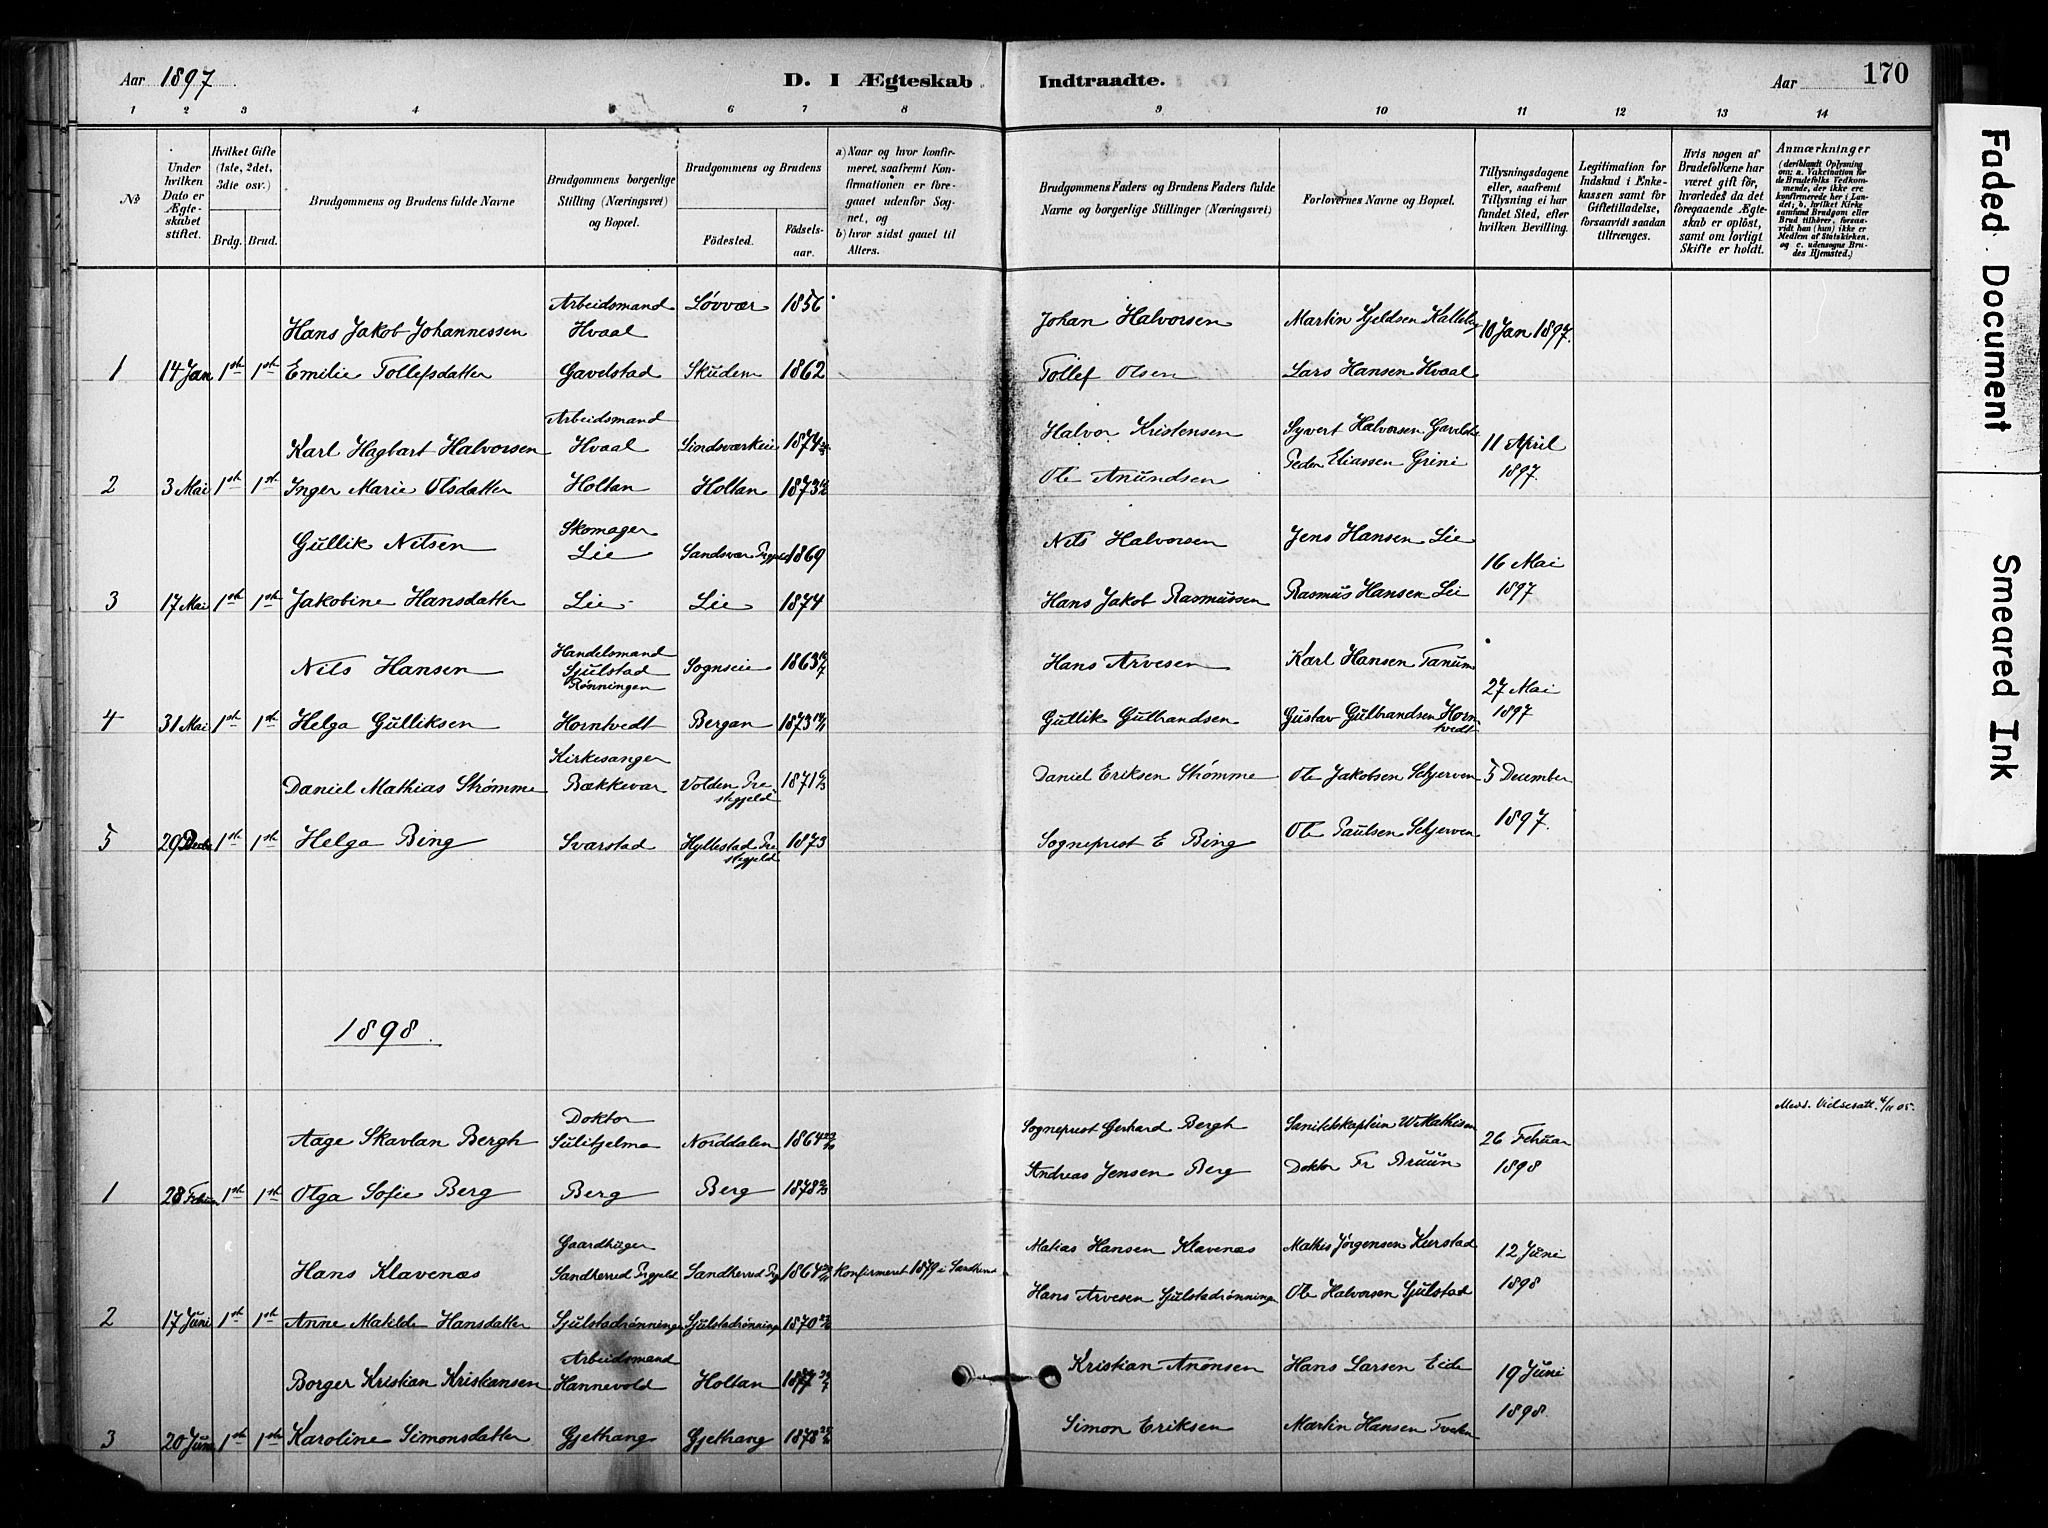 Aar 1897
D. I Ægteskab Indtraadte.
Aar
170
1 2 3 4 5 6 7 8 9 10 11 12 13 14
No
Under hvilken Dato er Ægteskabet stiftet.
Hvilket Gifte (1ste, 2det, 3die osv.)
Brdg. Brud.
Brudgommens og Brudens fulde Navne
Brudgommens borgerlige Stilling (Næringsvei) og Bopæl.
Brudgommens og Brudens
Fødested. Fødselsaar.
a) Naar og hvor konfirmeret, saafremt Konfirmationen er foregaaet udenfor Sognet, og
b) hvor sidst gaaet til Alters.
Brudgommens Faders og Brudens Faders fulde Navne og borgerlige Stillinger (Næringsvei)
Forlovernes Navne og Bopæl.
Tillysningsdagene eller, saafremt Tillysning ei har fundet Sted, efter hvilken Bevilling.
Legitimation for Indskud i Enkekassen samt for Giftetilladelse, forsaavidt saadan tiltrænges.
Hvis nogen af Brudefolkene har været gift før, hvorledes da det foregaaende Ægteskab er opløst, samt om lovligt Skifte er holdt.
Anmærkninger
(deriblandt Oplysning om: a. Vakcination for de Brudefolks Vedkommende, der ikke ere konfirmerede her i Landet; b. hvilket Kirkesamfund Brudgom eller Brud tilhører, forsaavidt han (hun) ikke er Medlem af Statskirken, og c. udensogns Brudes Hjemsted.)
Hans Jakob Johannessen Arbeidsmand Hvaal Løvvær 1856 Johan Halvorsen Martin Kjeldsen 10 Jan 1897.
1 14 Jan 1ste 1ste Emilie Tollefsdatter Gavelstad 1862 Tollef Olsen Lars Hansen Hvaal
Karl Hagbart Halvorsen Arbeidsmand Hvaal Lindsværkeie 1874 Halvor Kristensen Syvert Halvorsen 11 April 1897.
2 3 Mai 1ste 1ste Inger Marie Olsdatter Holtan Holtan 1873 Ole Anundsen Peder Eliassen Grini
Gullik Nilsen Skomager Lie Sandsvær Prgjeld 1869 Nils Halvorsen Jens Hansen Lie 16 Mai 1897
3 17 Mai 1ste 1ste Jakobine Hansdatter Lie Lie 1874 Hans Jakob Rasmussen Rasmus Hansen Lie
Nils Hansen Handelsmand Sjulstad Rønningen Sognseie 1863 Hans Arvesen Karl Hansen Tanum 27 Mai 1897
4 31 Mai 1ste 1ste Helga Gulliksen Horntvedt Bergan 1873 Gullik Gulbrandsen Gustav Gulbrandsen Horntvedt
Daniel Mathias Strømme Kirkesanger Bækkevar Volden Prestegjeld 1871 Daniel Eriksen Strømme Ole Jakobsen Skjerven 5 December 1897.
5 29 Decbr 1ste 1ste Helga Bing Svarstad Hyllestad Prestegjeld 1873 Sogneprest E Bing Ole Paulsen Skjerven
1898.
Medd. Vielsesatt. 4/11 05.
Aage Skavlan Bergh Doktor Sulitjelma Norddalen 1864 Sogneprest Gerhard Bergh Sanitetskaptein W Mathisen 26 Februar 1898
1 28 Febr 1ste 1ste Olga Sofie Berg Berg Berg 1878 Andreas Jensen Berg Doktor Fr Bruun
Hans Klavenæs Gaardbruger Sandherred Prgjeld Sandherred Prg 1864 Konfirmeret 1879 i Sandherred Matias Hansen Klavenæs Mathis Jørgensen 12 Juni 1898
2 17 Juni 1ste 1ste Anne Matilde Hansdatter Sjulstadrønningen Sjulstadrønningen 1870 Hans Arvesen Sjulstadrønningen Ole Halvorsen Sjulstad
Borger Kristian Kristiansen Arbeidsmand Hannevold Holtan 1877 Kristian Anonsen Hans Larsen Eide 19 Juni 1898.
3 20 Juni 1ste 1ste Karoline Simonsdatter Gjethang Gjethang 1878 Simon Eriksen Martin Hansen Tveten
Faded Document
Smeared Ink